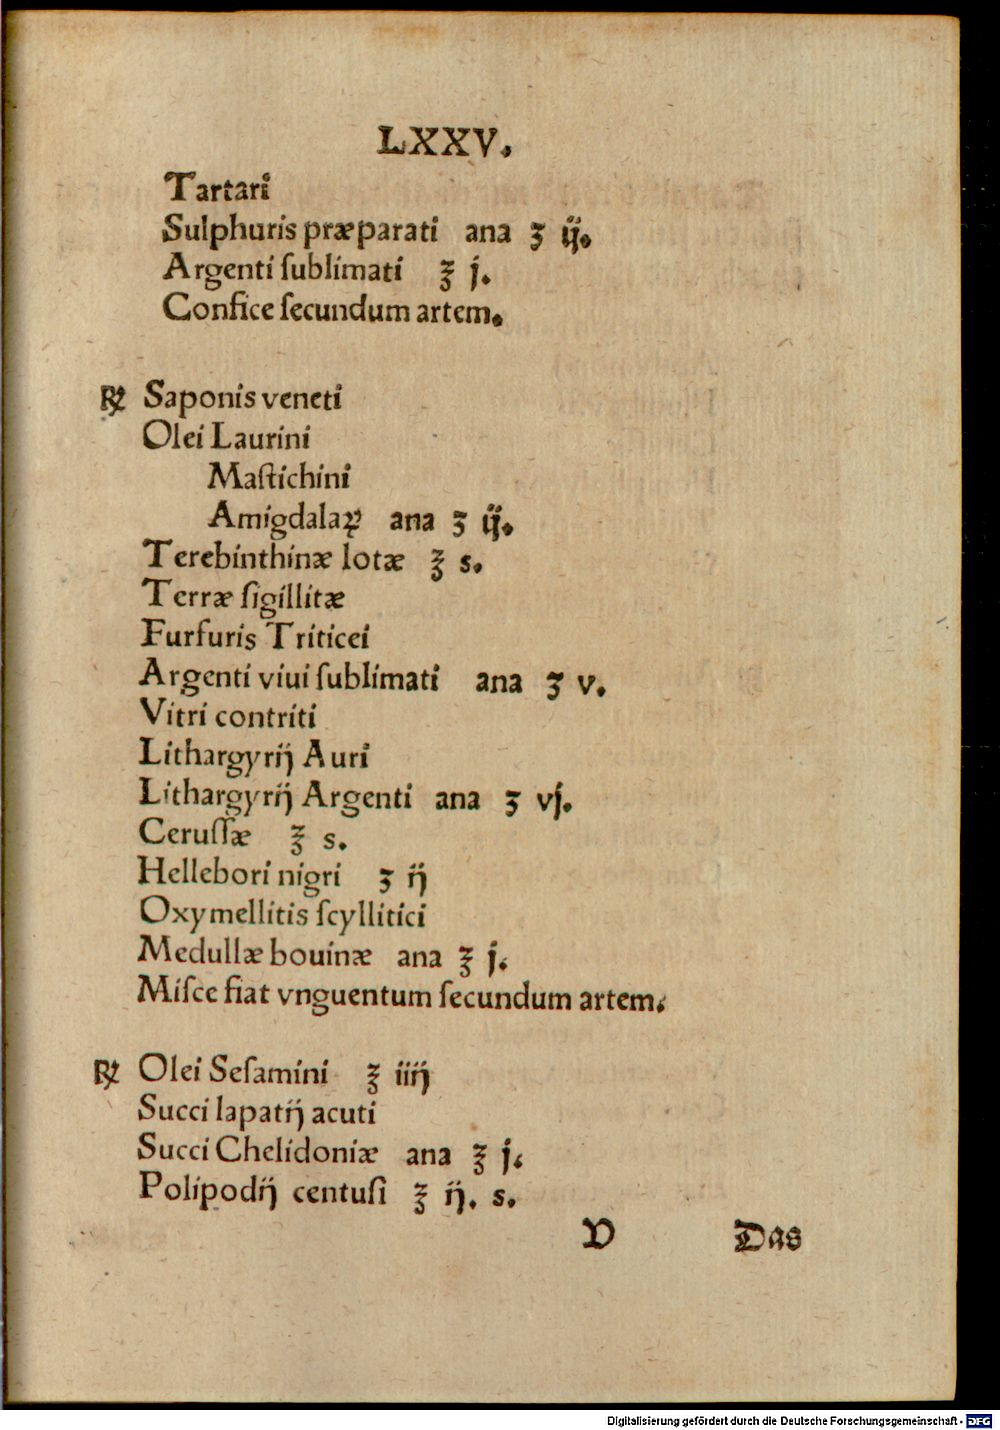 LXXV.
Tartari
Sulphuris præparati ana ʒ ij.
Argenti ſublimati ℥ j.
Confice ſecundum artem.
℞ Saponis veneti
Olei Laurini
Maſtichini
Amigdalaꝝ ana ʒ ij.
Terebinthinæ lotæ ℥ s.
Terræ ſigillitæ
Furfuris Triticei
Argenti viui ſublimati ana ʒ v.
Vitri contriti
Lithargyrij Auri
Lithargyrij Argenti ana ʒ vj.
Ceruſſæ ℥ s.
Hellebori nigri ʒ ij
Oxymellitis ſcyllitici
Medullæ bouinæ ana ℥ j.
Miſce fiat vnguentum ſecundum artem.
℞ Olei Seſamini ℥ iiij
Succi lapatij acuti
Succi Chelidoniæ ana ℥ j.
Polipodij centuſi ℥ ij. s.
V Das
Digitalisierung gefördert durch die Deutsche Forschungsgemeinschaft - DFG